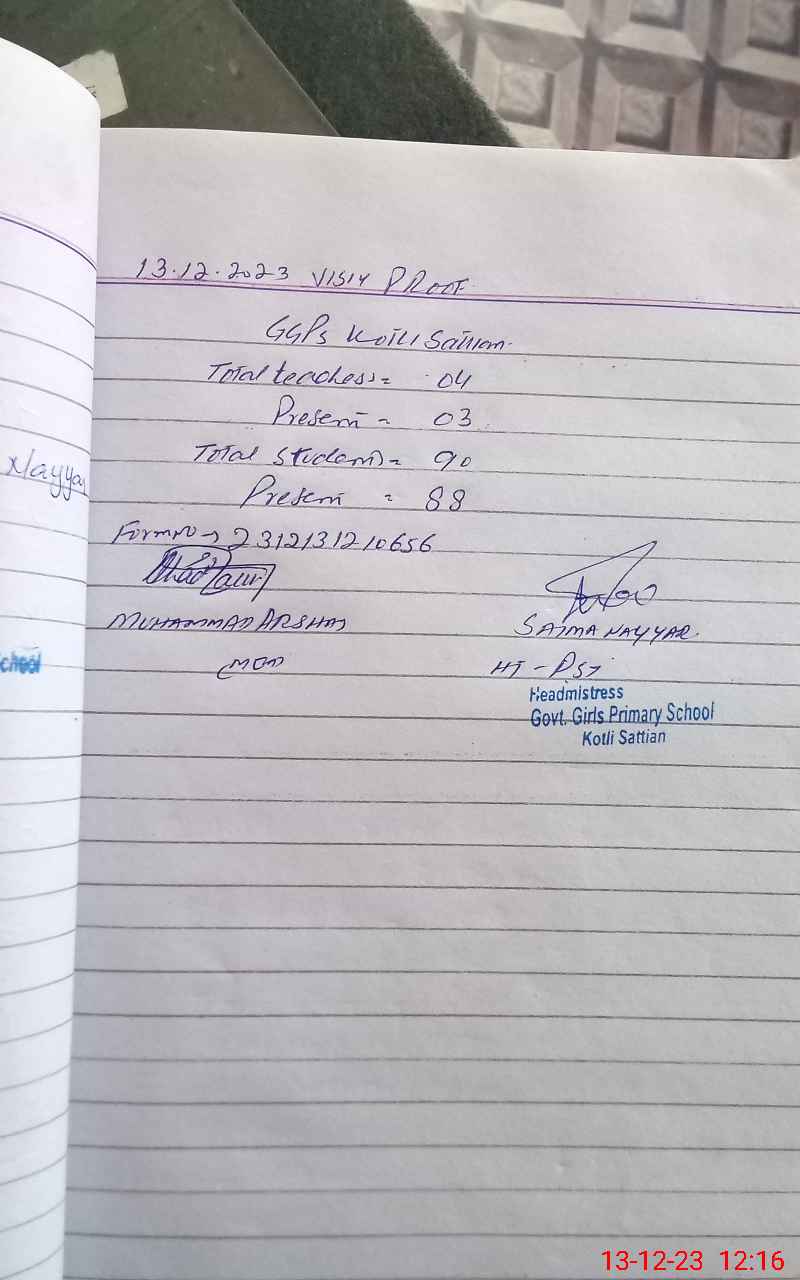 13.12.2023 VISIT PROOF
GGPS Kotli Sattian.
Total teachers = 04
Present = 03
Total students = 90
Present = 88
Form No → 2312131210656
MUHAMMAD ARSHAD
SAIMA NAYYAR.
HT - PST
Headmistress
Govt. Girls Primary School
Kotli Sattian
Nayyar
chool
13-12-23 12:16